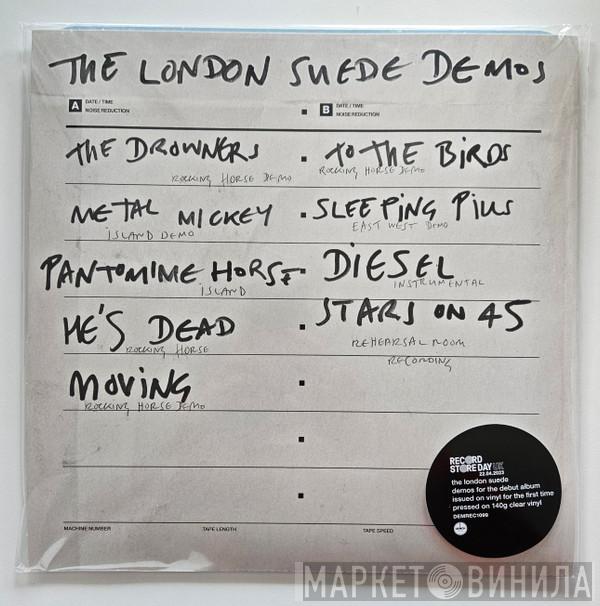 THE LONDON SUEDE DEMOS
A DATE / TIME
NOISE REDUCTION
B DATE / TIME
NOISE REDUCTION
THE DROWNERS
ROCKING HORSE DEMO
TO THE BIRDS
ROCKING HORSE DEMO
METAL MICKEY
ISLAND DEMO
SLEEPING PILLS
EAST WEST DEMO
PANTOMIME HORSE
ISLAND
DIESEL
INSTRUMENTAL
HE'S DEAD
ROCKING HORSE
STARS ON 45
REHEARSAL ROOM
RECORDING
MOVING
ROCKING HORSE DEMO
RECORD
STORE DAY UK
22.04.2023
the london suede
demos for the debut album
issued on vinyl for the first time
pressed on 140g clear vinyl
DEMREC1099
MACHINE NUMBER
TAPE LENGTH
TAPE SPEED
МАРКЕТ ВИНИЛА